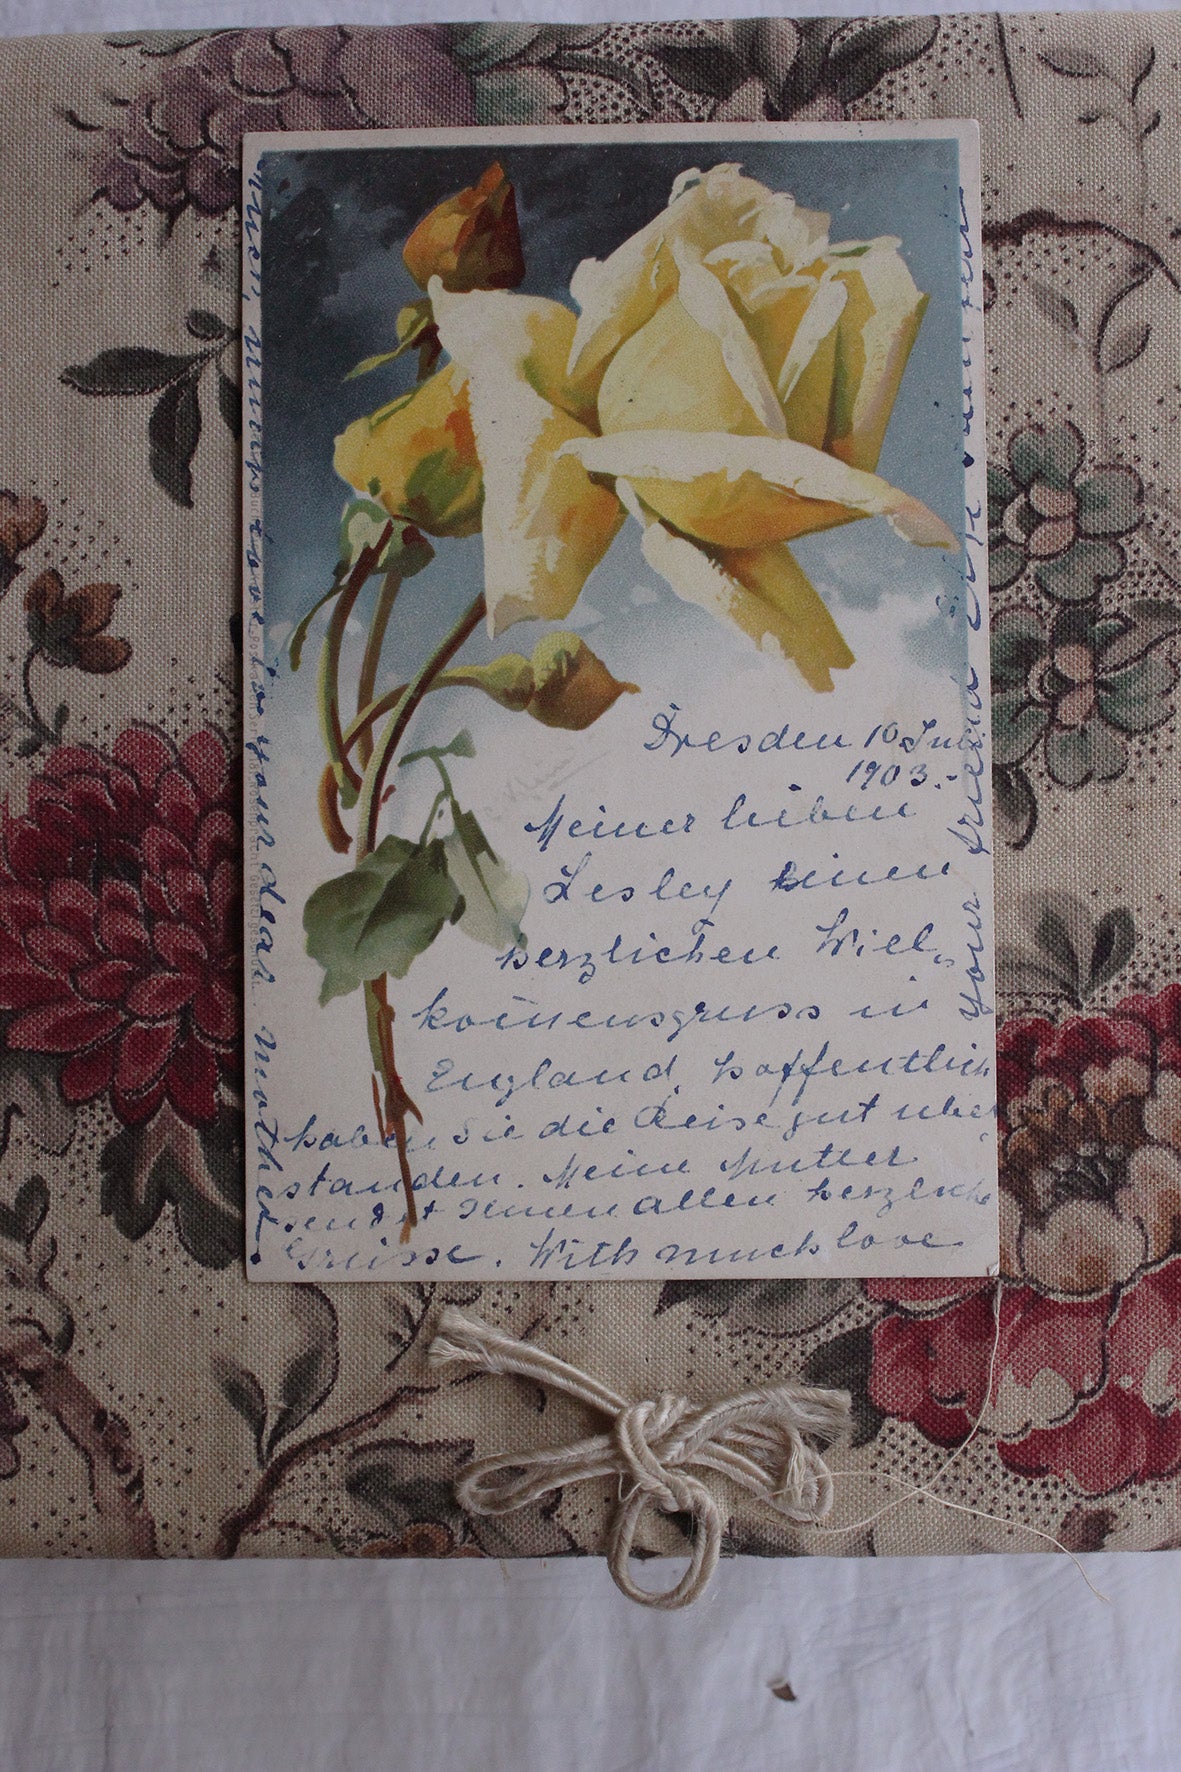 Dresden 10 Juli
1903.-
Meiner lieben
Lesley einen
herzlichen Will-
kommensgruss in
England, hoffentlich
haben Sie die Reise gut über
standen. Meine Mutter
sendet Ihnen allen herzliche
Grüsse. With much love
Your friend
love to your dear mother.